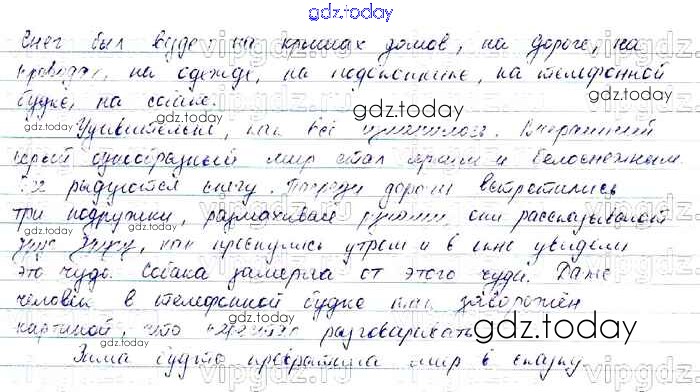 gdz.today
Снег был везде: на крышах домов, на дороге, на
проводах, на одежде, на подоконнике, на телефонной
будке, на собаке.
gdz.today
Удивительно, как всё изменилось. Вчерашний
серый однообразный мир стал ярким и белоснежным.
Все радуются снегу. Посреди дороги встретились
три подружки, размахивая руками, они рассказывают
друг другу, как проснулись утром и в окне увидели
это чудо. Собака замерла от этого чуда. Даже
человек в телефонной будке как заворожён
картиной, что разговаривать
gdz.today
Зима будто превратила мир в сказку